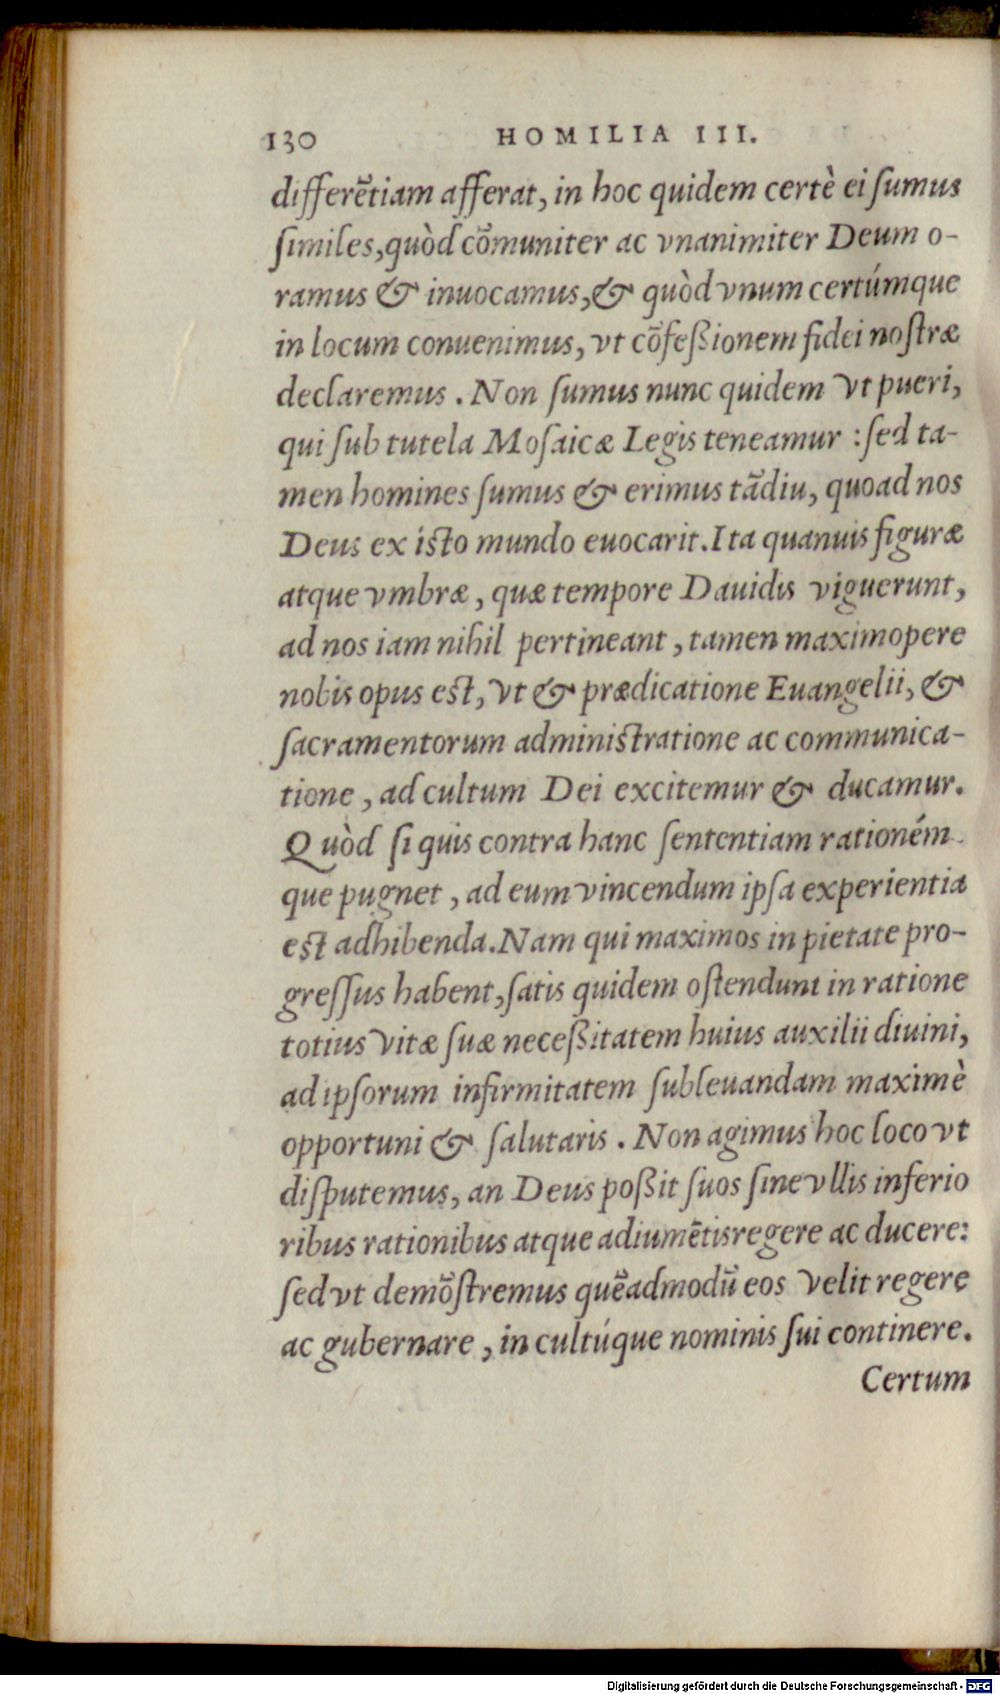 130 HOMILIA III.
differētiam afferat, in hoc quidem certè ei ſumus
ſimiles, quòd cōmuniter ac vnanimiter Deum o-
ramus & inuocamus, & quòd vnum certúmque
in locum conuenimus, vt cōfeßionem fidei noſtræ
declaremus. Non ſumus nunc quidem vt pueri,
qui ſub tutela Moſaicæ Legis teneamur : ſed ta-
men homines ſumus & erimus tādiu, quoad nos
Deus ex iſto mundo euocarit. Ita quanuis figuræ
atque vmbræ, quæ tempore Dauidis viguerunt,
ad nos iam nihil pertineant, tamen maximopere
nobis opus eſt, vt & prædicatione Euangelii, &
ſacramentorum adminiſtratione ac communica-
tione, ad cultum Dei excitemur & ducamur.
Quòd ſi quis contra hanc ſententiam rationém-
que pugnet, ad eum vincendum ipſa experientia
eſt adhibenda. Nam qui maximos in pietate pro-
greſſus habent, ſatis quidem oſtendunt in ratione
totius vitæ ſuæ neceßitatem huius auxilii diuini,
ad ipſorum infirmitatem ſubleuandam maximè
opportuni & ſalutaris. Non agimus hoc loco vt
diſputemus, an Deus poßit ſuos ſine vllis inferio
ribus rationibus atque adiumētis regere ac ducere:
ſed vt demōſtremus quēadmodū eos velit regere
ac gubernare, in cultúque nominis ſui continere.
Certum
Digitalisierung gefördert durch die Deutsche Forschungsgemeinschaft - DFG